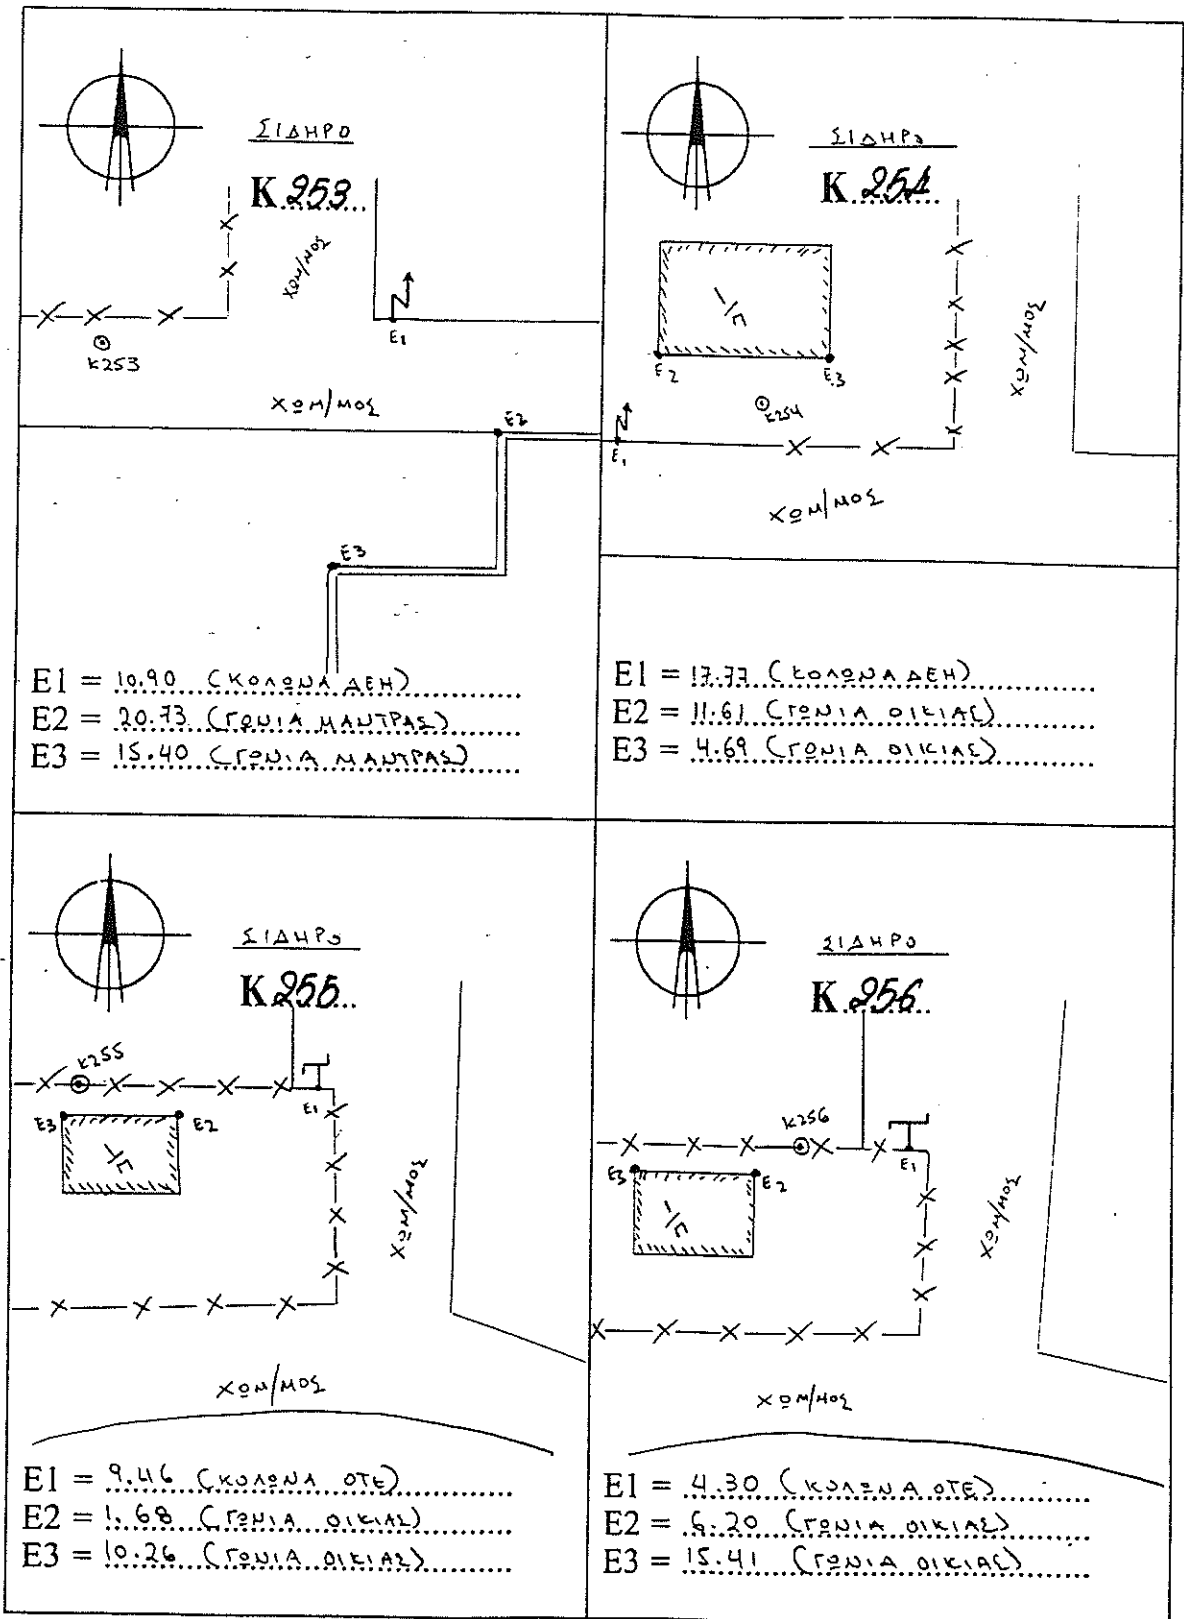 ΣΙΔΗΡΟ
K 253
ΧΩΜ/ΜΟΣ
E1
K253
ΧΩΜ/ΜΟΣ
E2
E3
E1 = 10.90 (ΚΟΛΩΝΑ ΔΕΗ)
E2 = 20.73 (ΓΩΝΙΑ ΜΑΝΤΡΑΣ)
E3 = 15.40 (ΓΩΝΙΑ ΜΑΝΤΡΑΣ)
ΣΙΔΗΡΟ
K 254
ΧΩΜ/ΜΟΣ
Γ/Γ
E2
E3
K254
E1
ΧΩΜ/ΜΟΣ
E1 = 17.77 (ΚΟΛΩΝΑ ΔΕΗ)
E2 = 11.61 (ΓΩΝΙΑ ΟΙΚΙΑΣ)
E3 = 4.69 (ΓΩΝΙΑ ΟΙΚΙΑΣ)
ΣΙΔΗΡΟ
K 255
K255
E1
E3
E2
ΧΩΜ/ΜΟΣ
ΧΩΜ/ΜΟΣ
E1 = 9.46 (ΚΟΛΩΝΑ ΟΤΕ)
E2 = 1.68 (ΓΩΝΙΑ ΟΙΚΙΑΣ)
E3 = 10.26 (ΓΩΝΙΑ ΟΙΚΙΑΣ)
ΣΙΔΗΡΟ
K 256
K256
E1
E3
E2
ΧΩΜ/ΜΟΣ
ΧΩΜ/ΜΟΣ
E1 = 4.30 (ΚΟΛΩΝΑ ΟΤΕ)
E2 = 6.20 (ΓΩΝΙΑ ΟΙΚΙΑΣ)
E3 = 15.41 (ΓΩΝΙΑ ΟΙΚΙΑΣ)